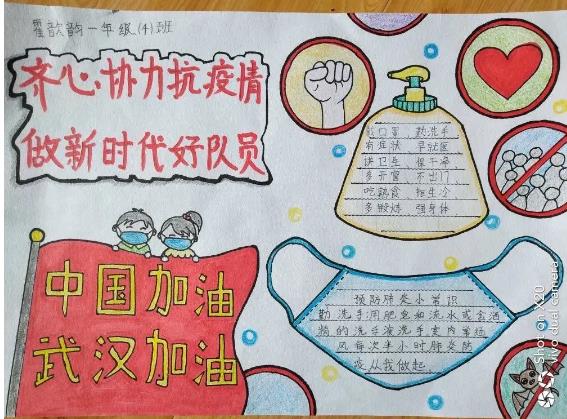 霍歆韵一年级(4)班
齐心协力抗疫情
做新时代好队员
戴口罩 勤洗手
有症状 早就医
讲卫生 保干净
多开窗 不出门
吃熟食 拒生冷
多锻炼 强身体
中国加油
武汉加油
预防肺炎小常识
勤洗手用肥皂如流水或含酒
精的洗手液洗手室内
风每次半小时肺炎防
疫从我做起
Shot on X20
vivo dual camera